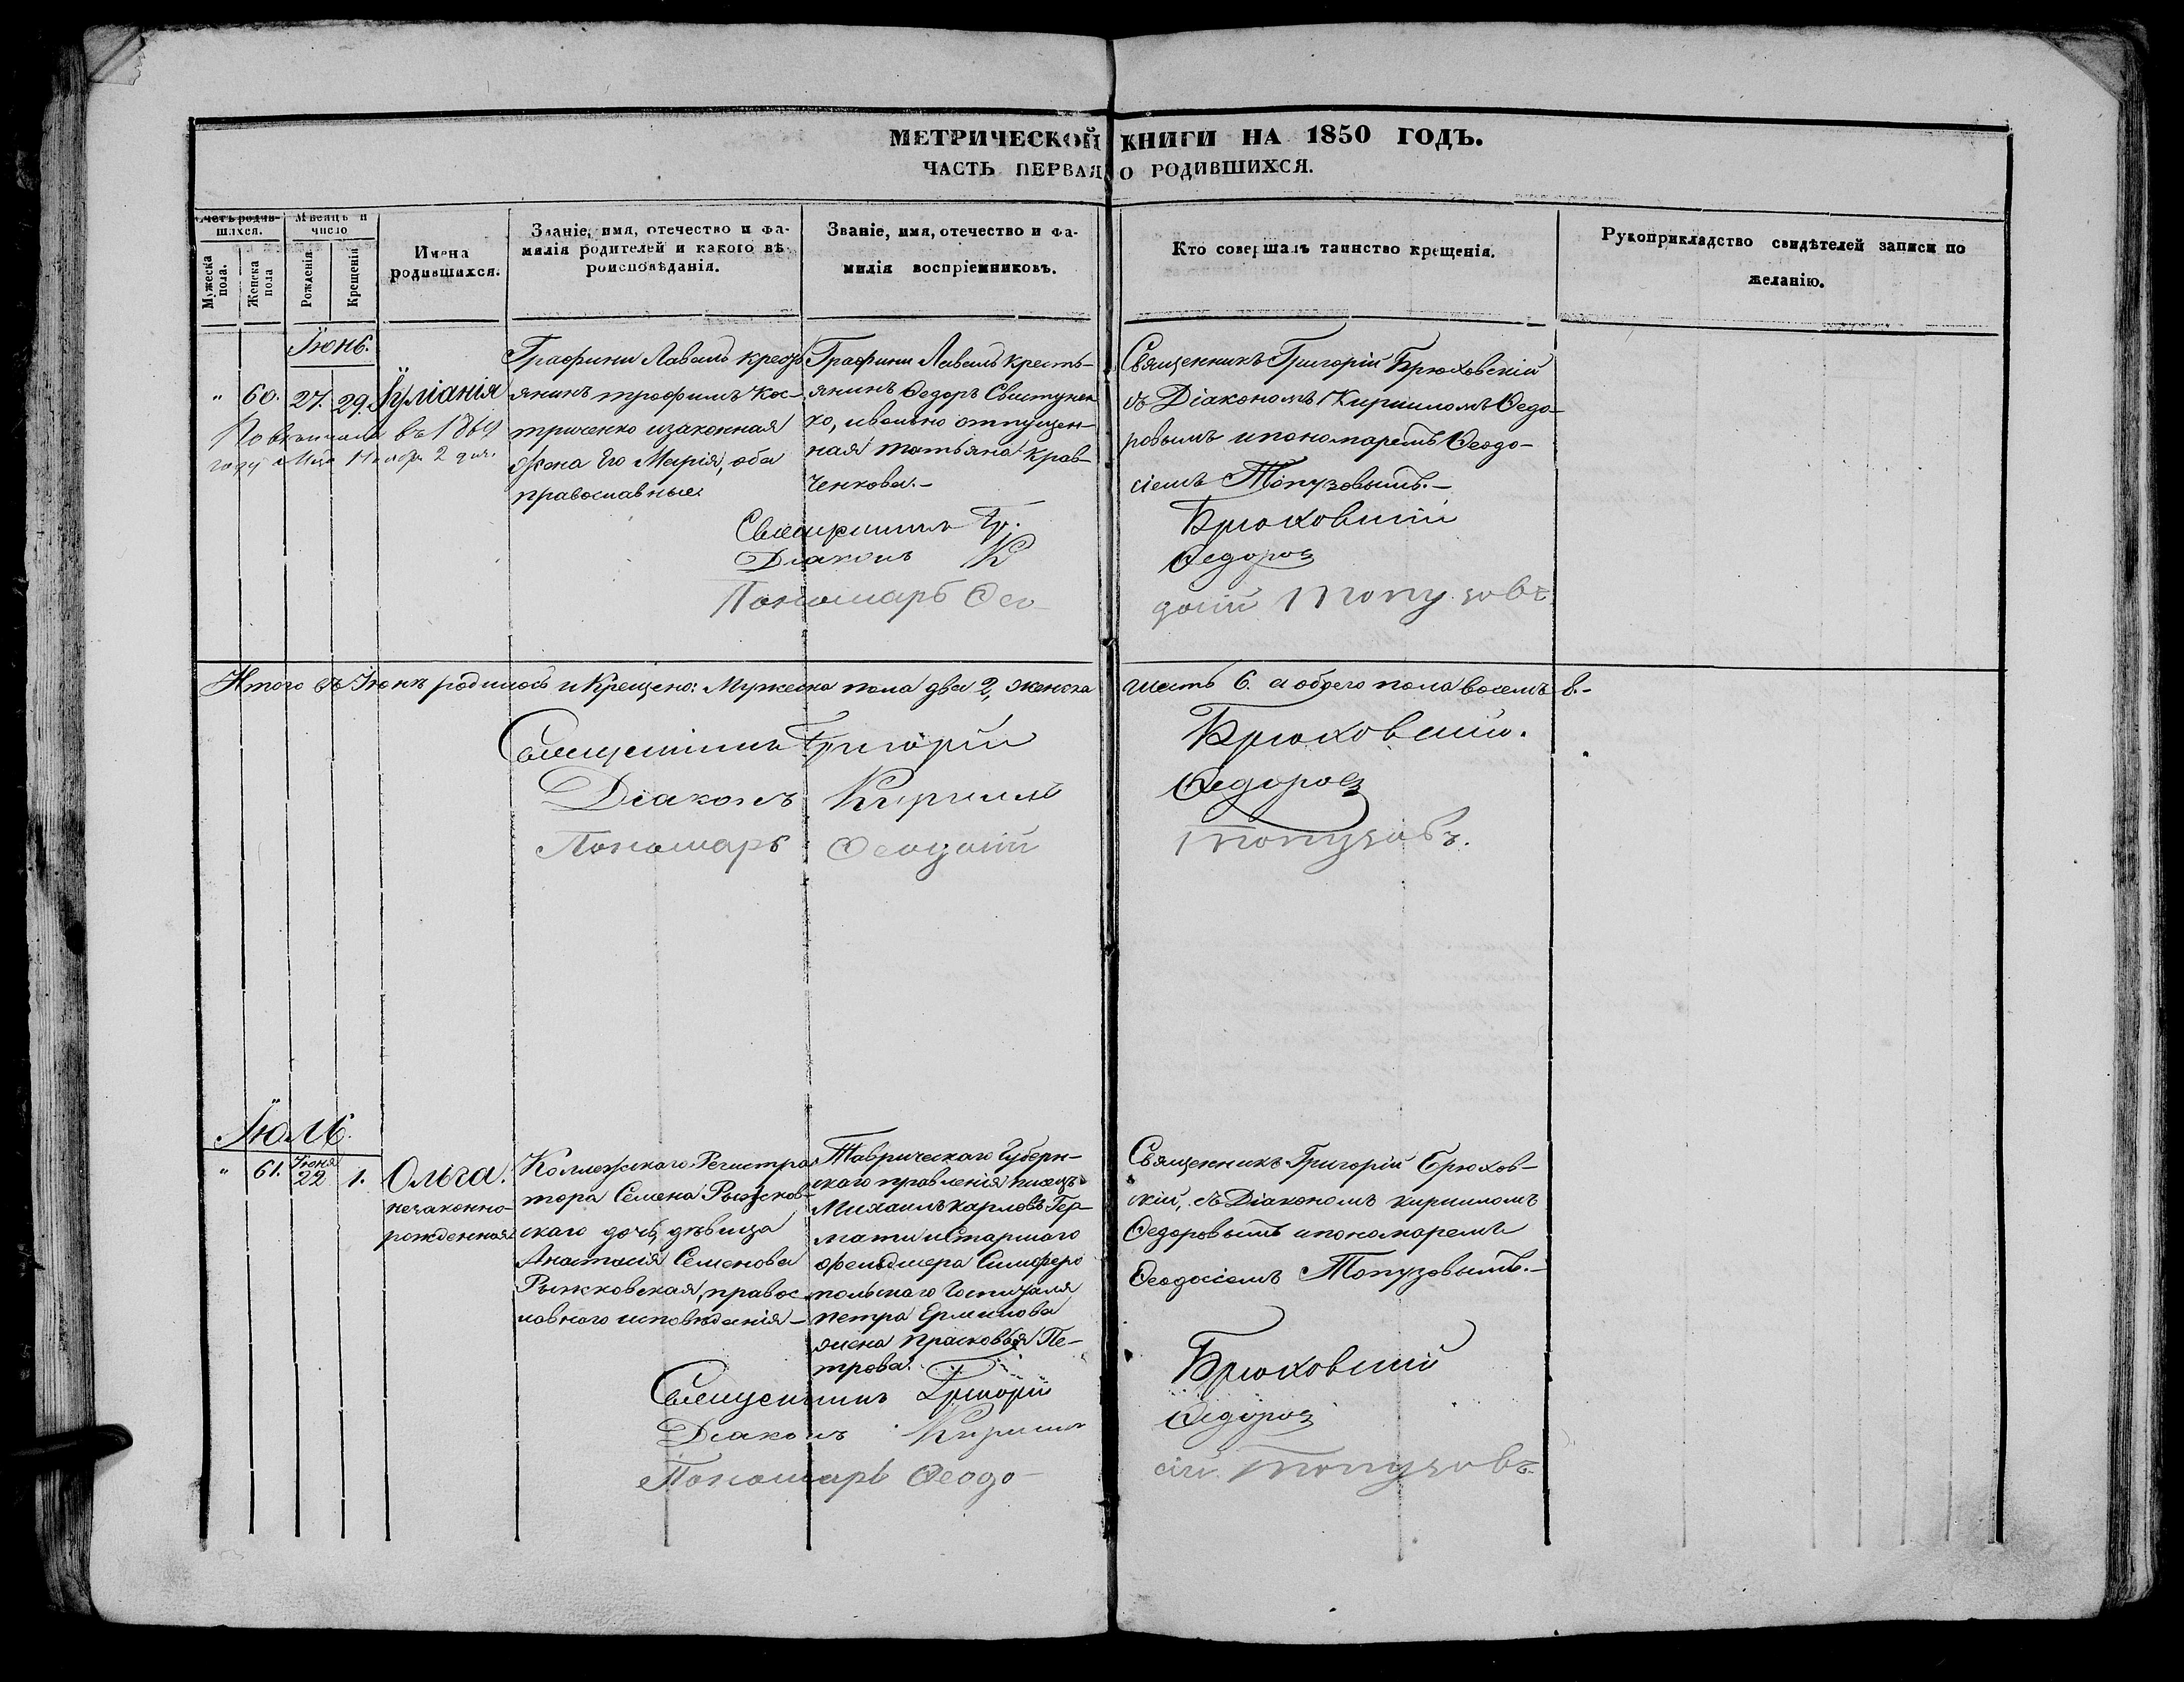 МЕТРИЧЕСКОЙ КНИГИ НА 1850 ГОДЪ.
ЧАСТЬ ПЕРВАЯ О РОДИВШИХСЯ.
Счетъ родив-
шихся.
Мужеска пола.
Женска пола
Мѣсяцъ и
число
Рожденія.
Крещенія
Имена
родившихся.
Званіе, имя, отечество и фа-
милія родителей и какого вѣ-
роисповѣданія.
Званіе, имя, отечество и фа-
милія воспріемниковъ.
Кто совершалъ таинство крещенія.
Рукоприкладство свидѣтелей записи по
желанію.
Іюнь.
" 60. 27. 29. Іуліанія
въ 1869
году 2 дня.
Графини Лаваль кресть
янинъ Трофимъ Кос-
триченко изаконная
жена Его Марія, оба
православные.
Графини Лаваль кресть-
янинъ Ѳедоръ Свистунен
ко, ивольно отпущен-
ная татьяна Крав-
ченкова.-
Священникъ Григорій Брюховскій
съ Діакономъ Кирилломъ Ѳедо-
ровымъ ипономаремъ Ѳеодо-
сіемъ Топузовымъ.-
Священникъ Гр. Брюховскій
Діаконъ К Ѳедоровъ
Пономарь Ѳео- досій Топузовъ
Итого въ Іюнѣ родилось и Крещено: Мужеска пола два 2, женска шесть 6. а обоего пола восемь 8.-
Священникъ Григорій Брюховскій.
Діаконъ Кириллъ Ѳедоровъ
Пономарь Ѳеодосій Топузовъ.
Іюль.
" 61. Іюня 22 1. Ольга.
незаконно-
рожденная
Коллежскаго Регистра
тора Семена Рыжков-
скаго дочь, дѣвица
Анатолія Семенова
Рыжковская, правос
лавного исповѣданія-
Таврическаго Губерн-
скаго правленія писецъ
Михаилъ карловъ Гер-
мати и Старшаго
фельдшера Симферо
польскаго Госпиталя
петра Ермилова
жена Прасковья Пе-
трова.
Священникъ Григорій Брюхов-
скій, съ Діакономъ кирилломъ
Ѳедоровымъ ипономаремъ
Ѳеодосіемъ Топузовымъ.-
Священникъ Григорій Брюховскій
Діаконъ Кириллъ Ѳедоровъ
Пономарь Ѳеодо- сій Топузовъ.